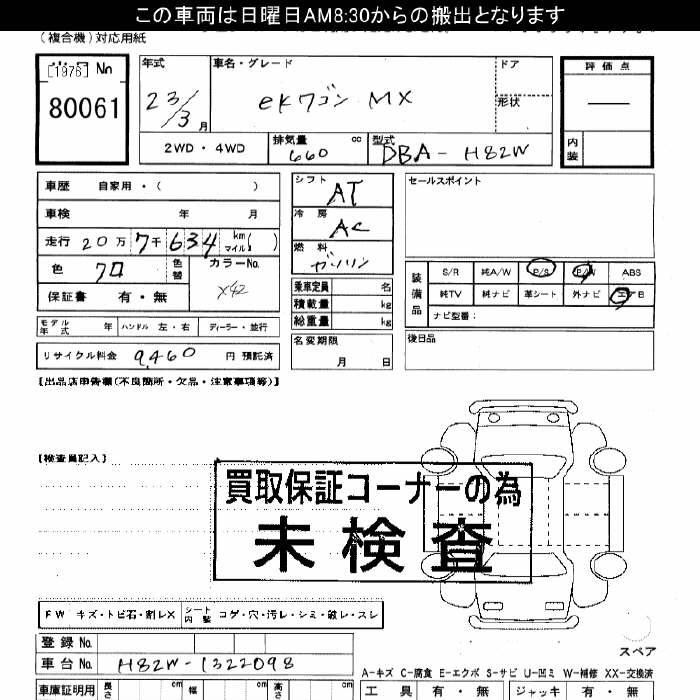 この車両は日曜日AM8:30からの搬出となります
(複合機)対応用紙
[1976] No
80061
年式
23/3月
車名・グレード
eKワゴン MX
ドア
形状
評価点
—
内装
2WD・4WD
排気量 660 cc
型式 DBA-H82W
車歴 自家用・( )
車検 年 月
走行 20万7千634 km マイル( )
色 クロ
色替
カラーNo.
X42
保証書 有・無
モデル年式 年 ハンドル 左・右 ディーラー・並行
リサイクル料金 9,460 円 預託済
シフト AT
冷房 AC
燃料 ガソリン
乗車定員 名
積載量 kg
総重量 kg
名変期限
月 日
セールスポイント
装備品
S/R 純A/W P/S P/W ABS
純TV 純ナビ 革シート 外ナビ エアB
ナビ型番:
後日品
【出品店申告欄(不良箇所・欠品・注意事項等)】
【検査員記入】
買取保証コーナーの為
未検査
FW キズ・トビ石・割レX シート内装 コゲ・穴・汚レ・シミ・破レ・スレ
登録No.
車台No. H82W-1322098
車庫証明用 長さ cm 幅 cm 高さ cm
スペア
A-キズ C-腐食 E-エクボ S-サビ U-凹ミ W-補修 XX-交換済
工具 有・無 ジャッキ 有・無